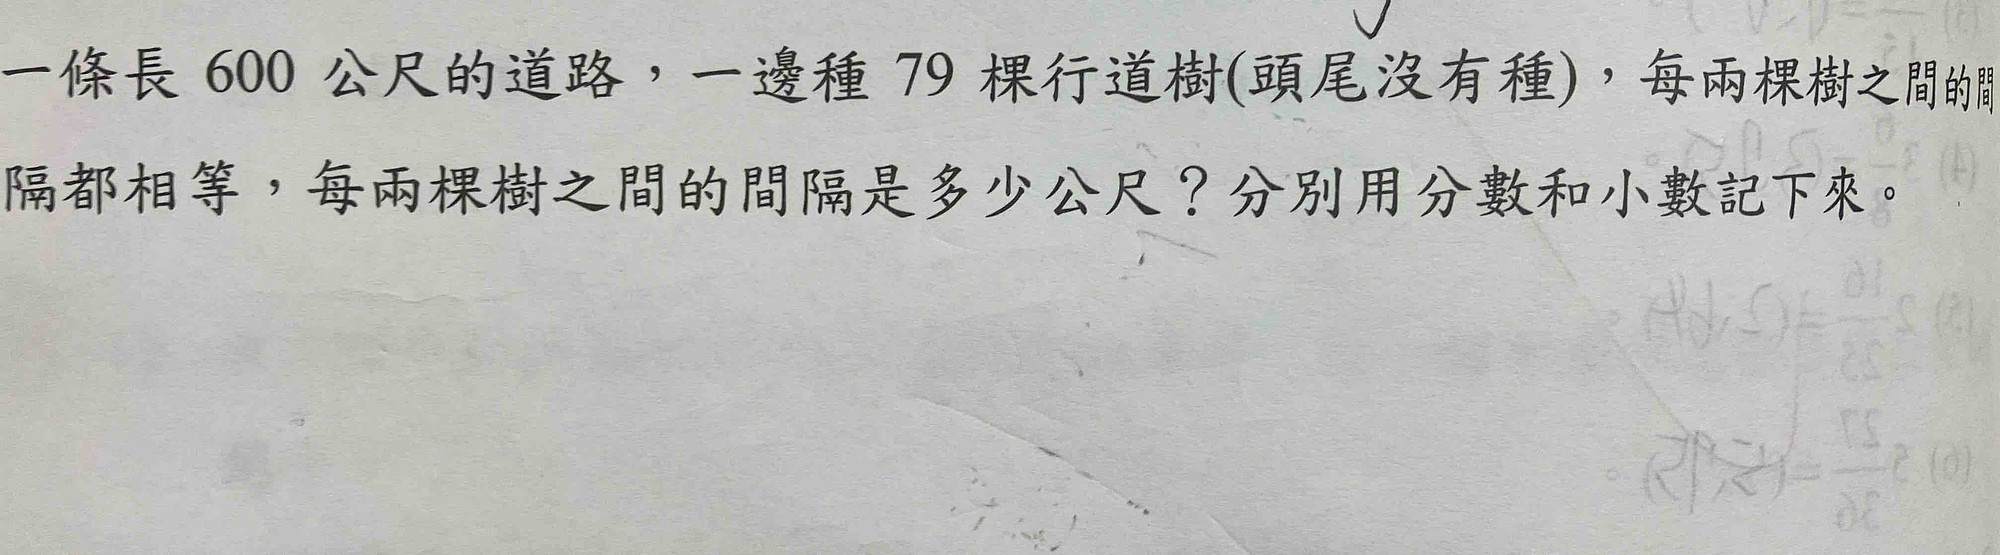 一條長 600 公尺的道路，一邊種 79 棵行道樹(頭尾沒有種)，每兩棵樹之間的間
隔都相等，每兩棵樹之間的間隔是多少公尺？分別用分數和小數記下來。